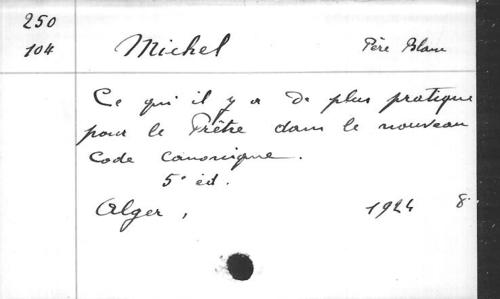 250
104 Michel Père Blanc
Ce qui il y a de plus pratique
pour le Prêtre dans le nouveau
Code canonique.
5e éd.
Alger, 1924 8.